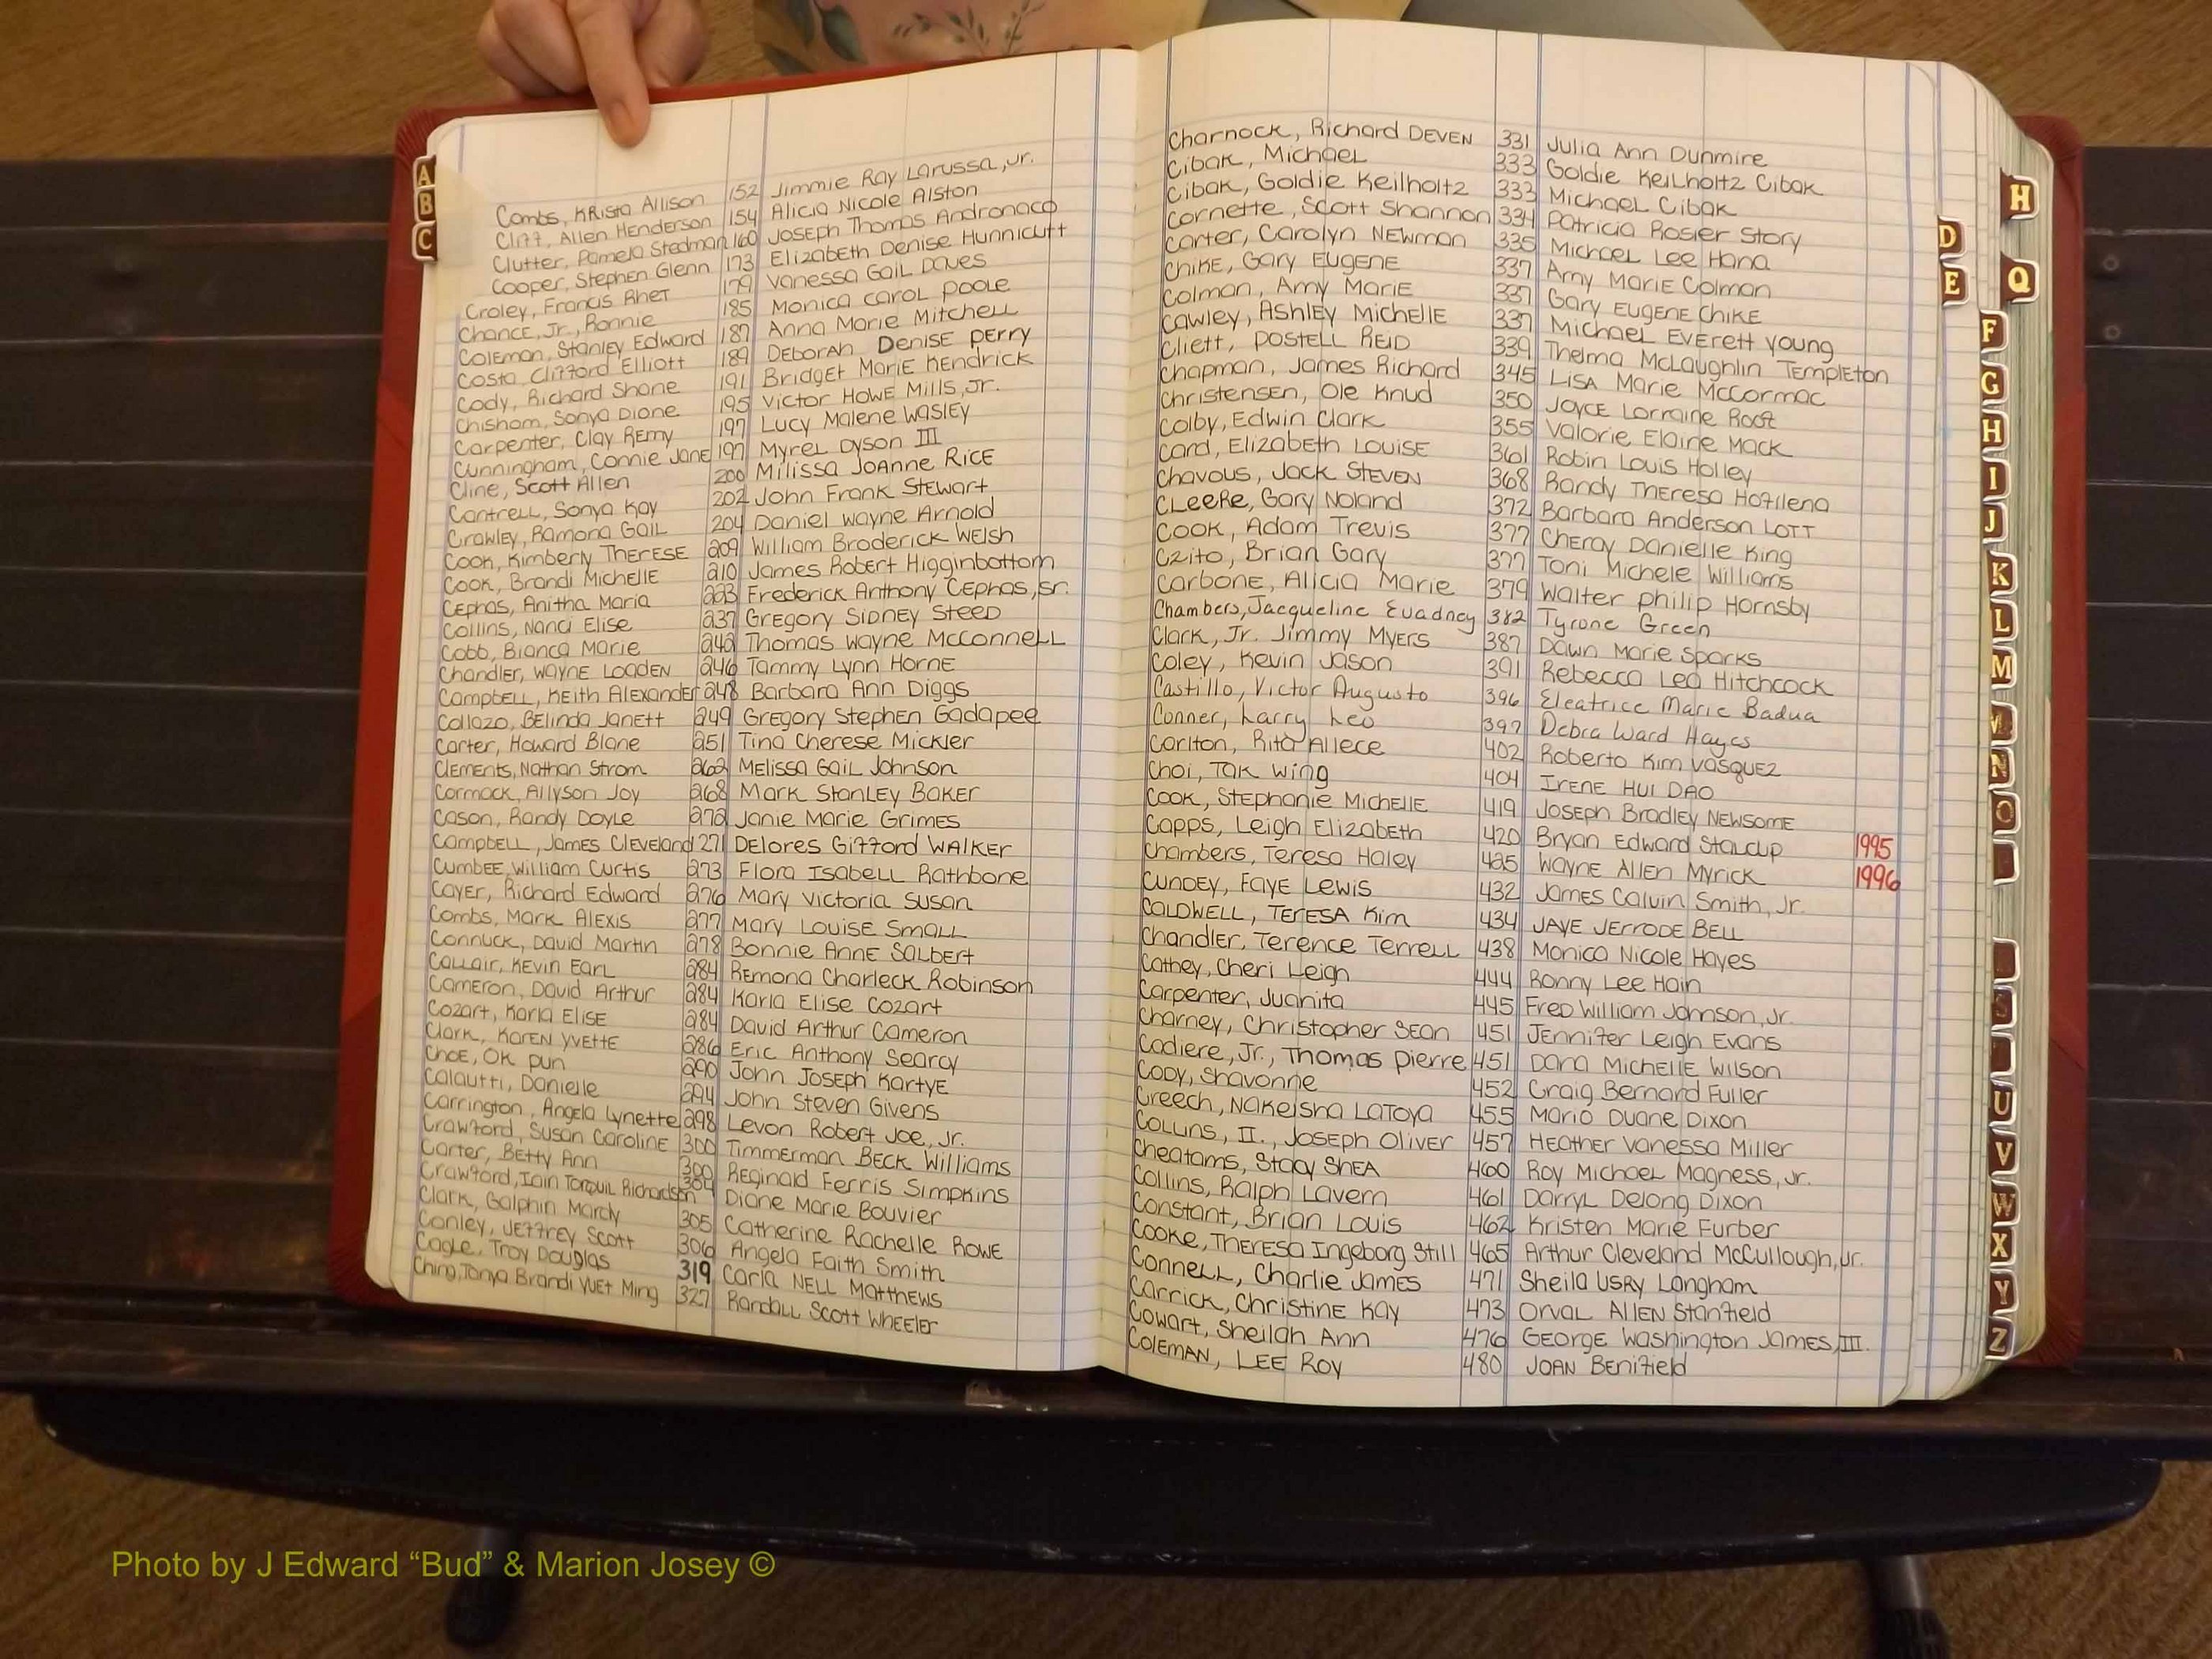 A
B
C
Combs, Krista Allison 152 Jimmie Ray Larussa, Jr.
Cliff, Allen Henderson 154 Alicia Nicole Alston
Clutter, Pamela Stedman 160 Joseph Thomas Andronaco
Cooper, Stephen Glenn 173 Elizabeth Denise Hunnicutt
Croley, Francis Rhet 179 Vanessa Gail Daves
Chance, Jr., Ronnie 185 Monica Carol Poole
Coleman, Stanley Edward 187 Anna Marie Mitchell
Costa, Clifford Elliott 189 Deborah Denise Perry
Cody, Richard Shane 191 Bridget Marie Kendrick
Chisham, Sonya Diane 195 Victor Howe Mills, Jr.
Carpenter, Clay Remy 197 Lucy Malene Wasley
Cunningham, Connie Jane 197 Myrel Dyson III
Cline, Scott Allen 200 Milissa JoAnne Rice
Cantrell, Sonya Kay 202 John Frank Stewart
Crawley, Ramona Gail 204 Daniel Wayne Arnold
Cook, Kimberly Therese 209 William Broderick Welsh
Cook, Brandi Michelle 210 James Robert Higginbottom
Cephas, Anitha Maria 223 Frederick Anthony Cephas, Sr.
Collins, Nanci Elise 237 Gregory Sidney Steed
Cobb, Bianca Marie 242 Thomas Wayne McConnell
Chandler, Wayne Loaden 246 Tammy Lynn Horne
Campbell, Keith Alexander 248 Barbara Ann Diggs
Collazo, Belinda Janett 249 Gregory Stephen Gadapee
Carter, Howard Blane 251 Tina Cherese Mickler
Clements, Nathan Strom 262 Melissa Gail Johnson
Cormack, Allyson Joy 268 Mark Stanley Baker
Cason, Randy Doyle 270 Janie Marie Grimes
Campbell, James Cleveland 271 Delores Gifford Walker
Cumbee, William Curtis 273 Flora Isabell Rathbone
Cayer, Richard Edward 276 Mary Victoria Susan
Combs, Mark Alexis 277 Mary Louise Small
Connuck, David Martin 278 Bonnie Anne Salbert
Callair, Kevin Earl 284 Remona Charleck Robinson
Cameron, David Arthur 284 Karla Elise Cozart
Cozart, Karla Elise 284 David Arthur Cameron
Clark, Karen Yvette 286 Eric Anthony Searcy
Choe, Ok Pun 290 John Joseph Kartye
Calautti, Danielle 294 John Steven Givens
Carrington, Angela Lynette 298 Levon Robert Joe, Jr.
Crawford, Susan Caroline 300 Timmerman Beck Williams
Carter, Betty Ann 300 Reginald Ferris Simpkins
Crawford, Iain Torquil Richardson 304 Diane Marie Bouvier
Clark, Galphin Mardy 305 Catherine Rachelle Rowe
Conley, Jeffrey Scott 306 Angela Faith Smith
Cagle, Troy Douglas 319 Carla Nell Matthews
Ching, Tanya Brandi Yuet Ming 327 Randall Scott Wheeler
Charnock, Richard Deven 331 Julia Ann Dunmire
Cibak, Michael 333 Goldie Keilholtz Cibak
Cibak, Goldie Keilholtz 333 Michael Cibak
Cornette, Scott Shannon 334 Patricia Rosier Story
Carter, Carolyn Newman 335 Michael Lee Hana
Chike, Gary Eugene 337 Amy Marie Colman
Colman, Amy Marie 337 Gary Eugene Chike
Cawley, Ashley Michelle 337 Michael Everett Young
Cliett, Postell Reid 339 Thelma McLaughlin Templeton
Chapman, James Richard 345 Lisa Marie McCormac
Christensen, Ole Knud 350 Joyce Lorraine Root
Colby, Edwin Clark 355 Valorie Elaine Mack
Card, Elizabeth Louise 361 Robin Louis Holley
Chavous, Jack Steven 368 Randy Theresa Hofilena
Cleere, Gary Noland 372 Barbara Anderson Lott
Cook, Adam Trevis 377 Cheray Danielle King
Czito, Brian Gary 377 Toni Michele Williams
Carbone, Alicia Marie 379 Walter Philip Hornsby
Chambers, Jacqueline Evadney 382 Tyrone Green
Clark, Jr. Jimmy Myers 387 Dawn Marie Sparks
Coley, Kevin Jason 391 Rebecca Lea Hitchcock
Castillo, Victor Augusto 396 Eleatrice Marie Badua
Conner, Larry Leo 397 Debra Ward Hayes
Carlton, Rita Allece 402 Roberto Kim Vasquez
Choi, Tak Wing 404 Irene Hui Dao
Cook, Stephanie Michelle 419 Joseph Bradley Newsome
Capps, Leigh Elizabeth 420 Bryan Edward Stalcup 1995
Chambers, Teresa Haley 425 Wayne Allen Myrick 1996
Cundey, Faye Lewis 432 James Calvin Smith, Jr.
Caldwell, Teresa Kim 434 Jaye Jerrode Bell
Chandler, Terence Terrell 438 Monica Nicole Hayes
Cathey, Cheri Leigh 444 Ronny Lee Hain
Carpenter, Juanita 445 Fred William Johnson, Jr.
Charney, Christopher Sean 451 Jennifer Leigh Evans
Cadiere, Jr., Thomas Pierre 451 Dana Michelle Wilson
Cody, Shavonne 452 Craig Bernard Fuller
Creech, Nakeisha LaToya 455 Mario Duane Dixon
Collins, II., Joseph Oliver 457 Heather Vanessa Miller
Cheatams, Stacy Shea 460 Roy Michael Magness, Jr.
Collins, Ralph Lavern 461 Darryl Delong Dixon
Constant, Brian Louis 462 Kristen Marie Furber
Cooke, Theresa Ingeborg Still 465 Arthur Cleveland McCullough, Jr.
Connell, Charlie James 471 Sheila Usry Langham
Carrick, Christine Kay 473 Orval Allen Stanfield
Cowart, Sheilah Ann 476 George Washington James, III.
Coleman, Lee Roy 480 Joan Benifield
H
D
E
Q
F
G
H
I
J
K
L
M
N
O
U
V
W
X
Y
Z
Photo by J Edward “Bud” & Marion Josey ©